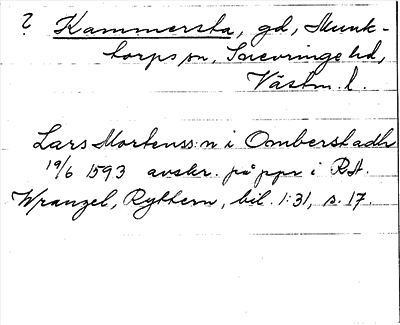 ? Kammersta, gd, Munk-
torps sn, Snevringe hd,
Västm. l.
Lars Mortenss:n i Omberstadh
19/6 1593 avskr. på ppr i RA.
Wrangel, Ryttern, bil. 1:31, s. 17.